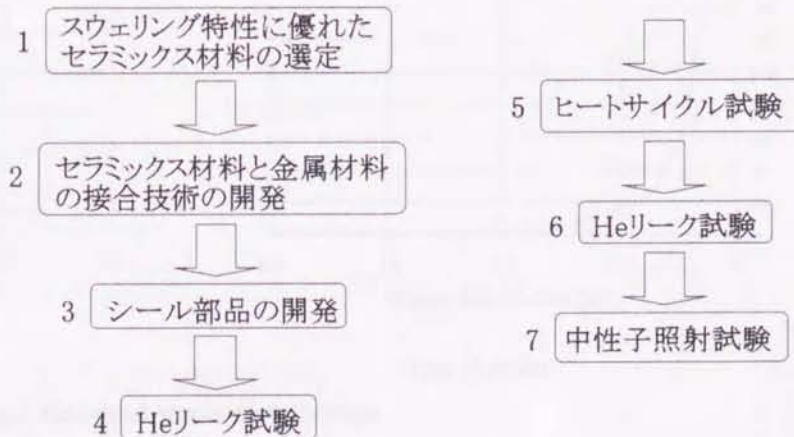 1 スウェリング特性に優れた
セラミックス材料の選定
2 セラミックス材料と金属材料
の接合技術の開発
3 シール部品の開発
4 Heリーク試験
5 ヒートサイクル試験
6 Heリーク試験
7 中性子照射試験